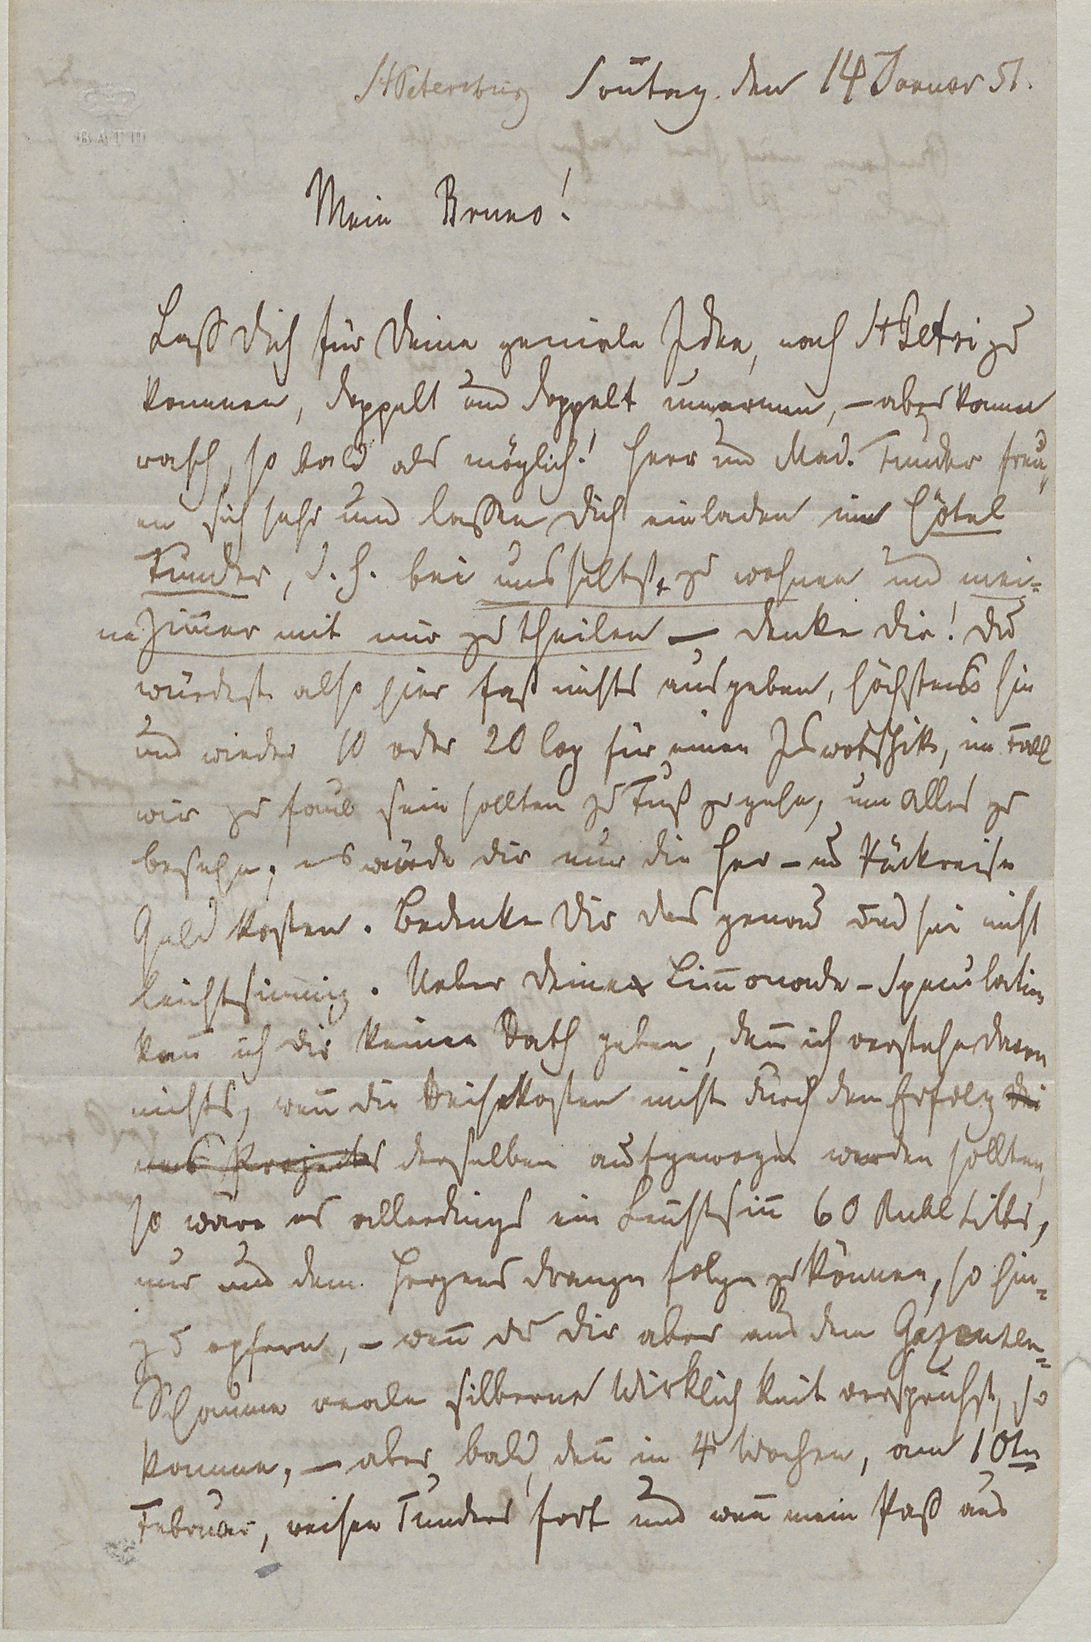 StPetersburg Sontag. den 14 Januar 51.
Mein Bruno!
Laß Dich für Deine geniale Idee, nach St Petri zu
kommen, doppelt und doppelt umarmen, – aber komme
rasch, so bald als möglich! Herr und Mad. Tunder freu„
en sich sehr und lassen Dich einladen im Hôtel
Tunder, d. h. bei uns selbst, zu wohnen und mei=
ne Zimmer mit mir zu theilen – denke Dir! Du
würdest also hier fast nichts ausgeben, höchstens hin
und wieder 10 oder 20 Cop für einen Iswotschik, im Fall
wir zu faul sein sollten zu Fuß zu gehn, um Alles zu
besehn; es würde Dir nur die Her- und Rückreise
Geld kosten. Bedenke Dir das genau und sei nicht
leichtsinnig. Ueber Deine Limonade-Speculation
kann ich Dir keinen Rath geben, denn ich verstehe davon
nichts, wenn die Reisekosten nicht durch den Erfolg dei
nes Projectes derselben aufgewogen werden sollten,
so wäre es allerdings ein Leichtsinn 60 Rubel Silber,
nur um dem Herzens drange folgen zu können, so hin=
zu opfern, – wenn Du Dir aber aus dem
Schaume reale silberne Wirklichkeit versprichst, so
komme, – aber bald, denn in 4 Wochen, am 10ten
Februar, reisen Tunders fort und wenn mein Paß aus